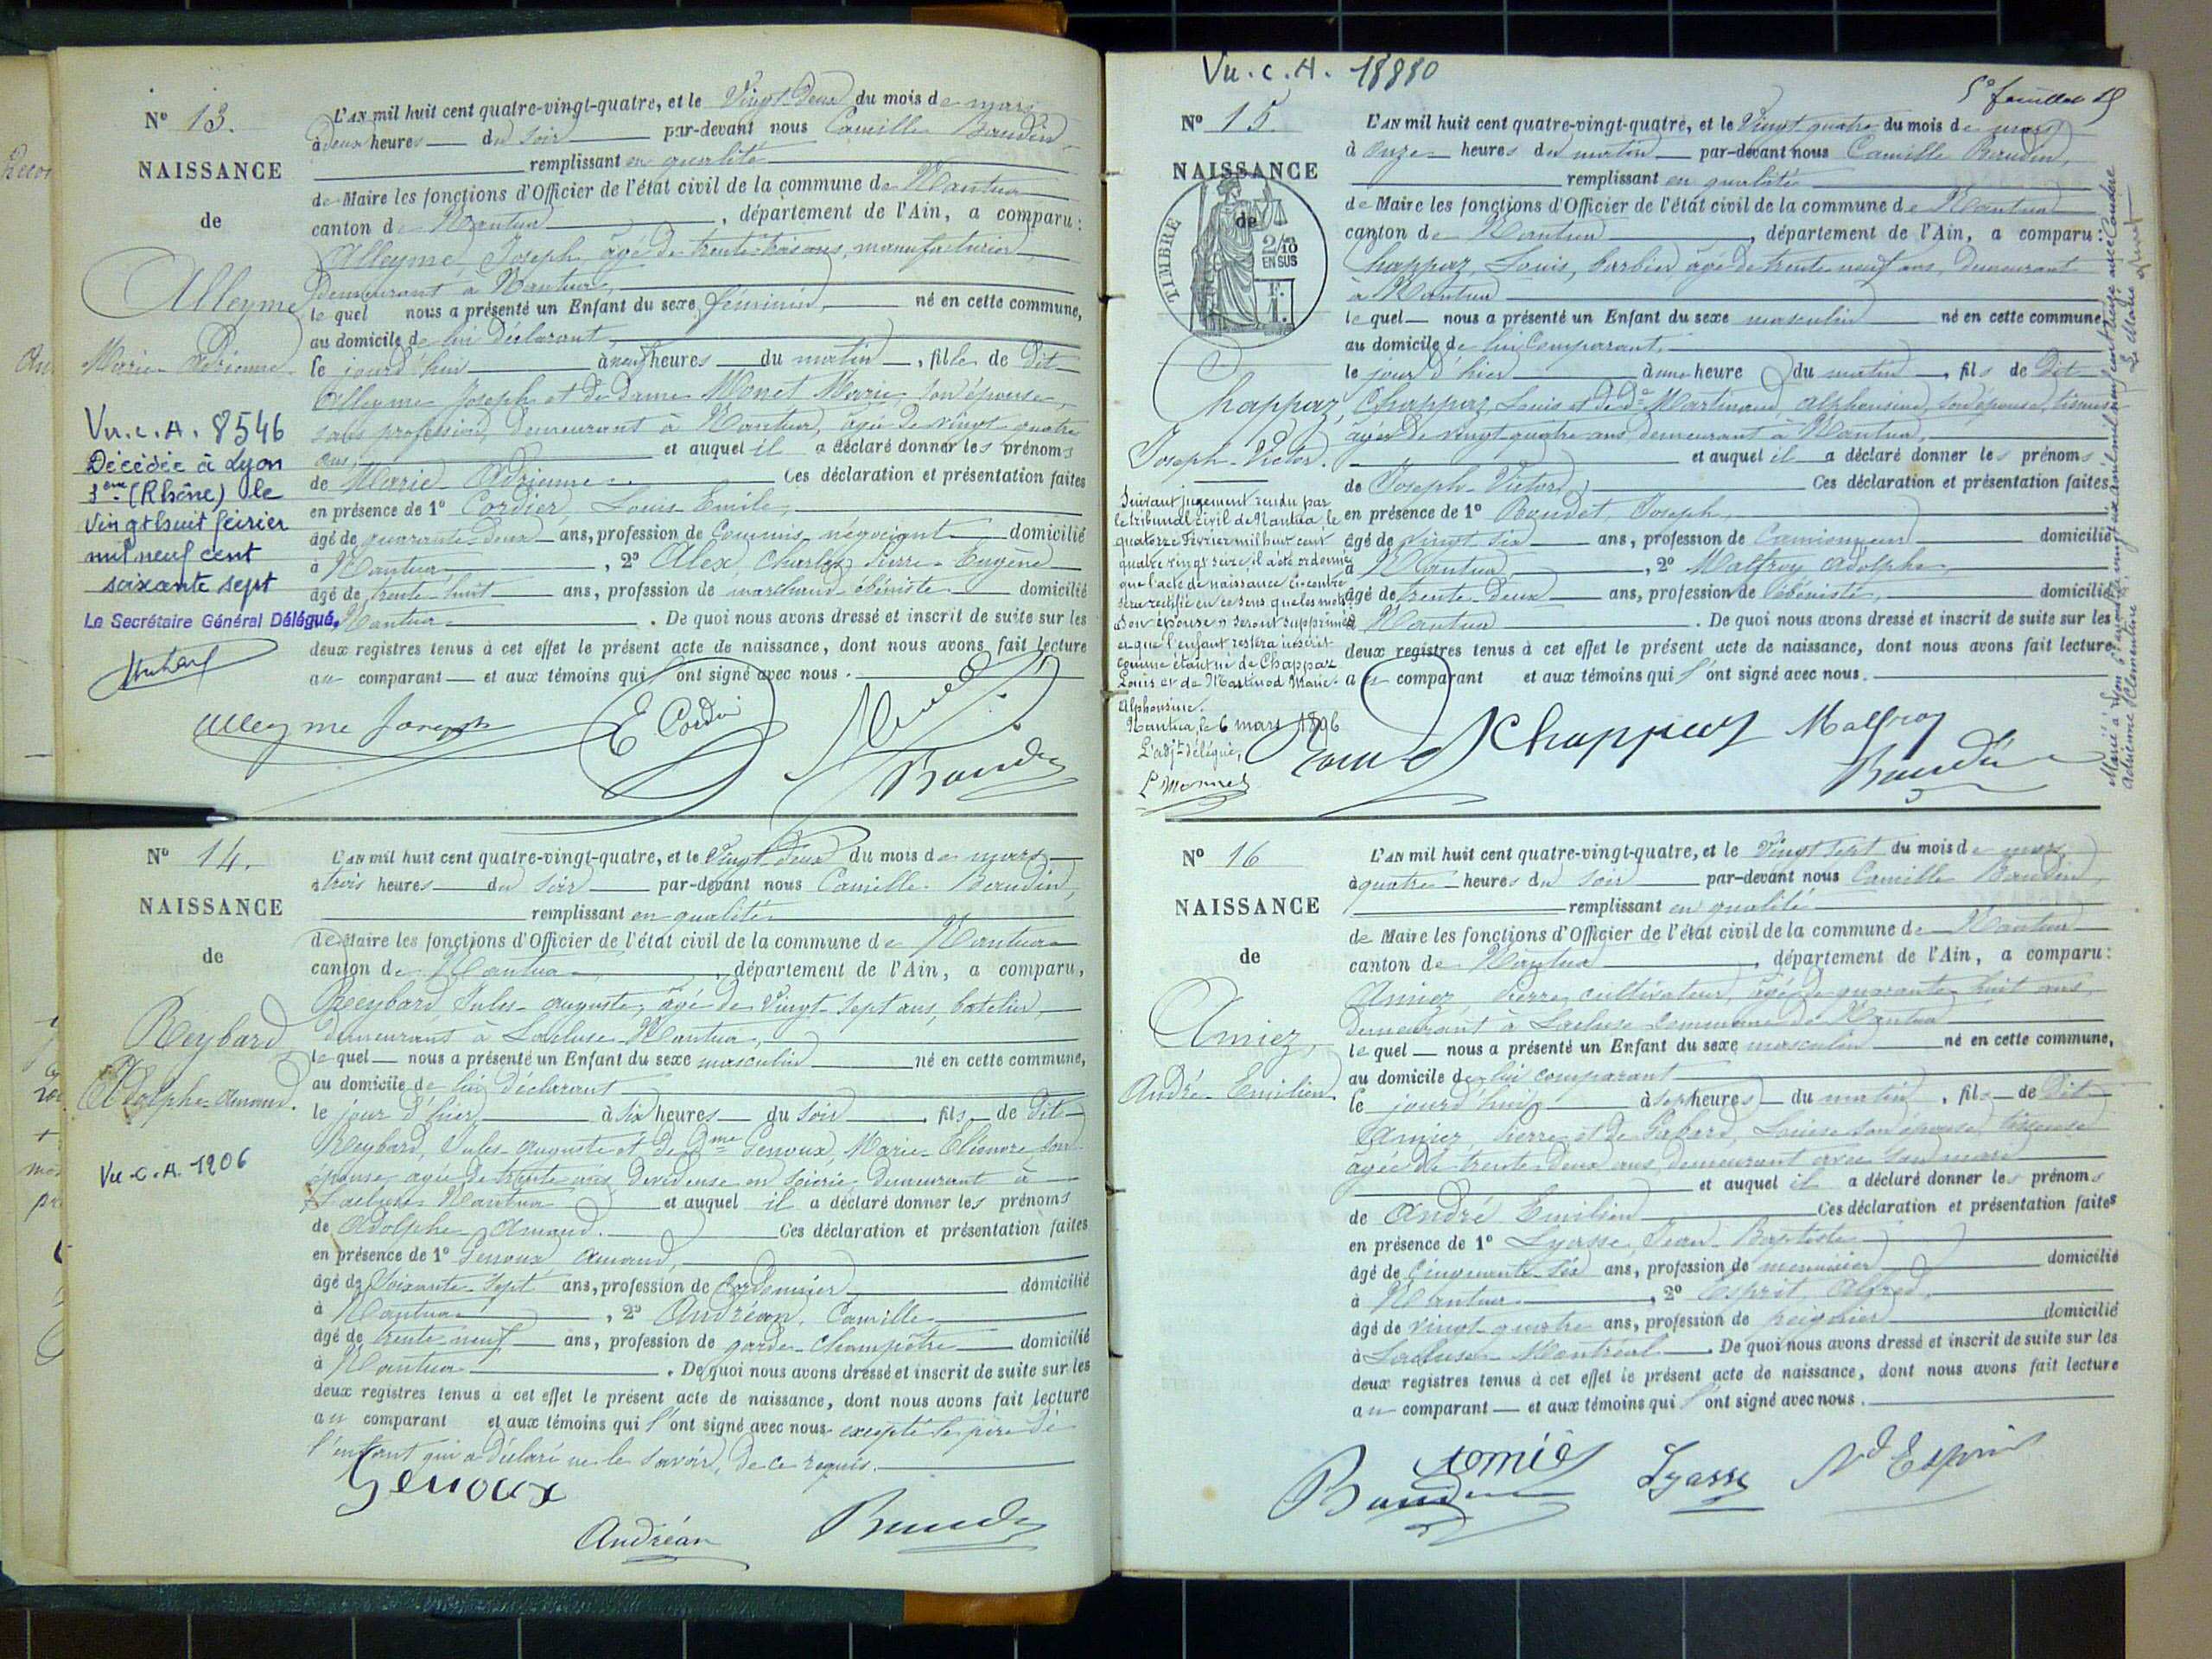 Nº 13.
NAISSANCE
de
Alleyme
Marie Adrienne
Vu. c. A. 8546
Décédée à Lyon
3ème (Rhône) le
vingt huit février
mil neuf cent
soixante sept
Le Secrétaire Général Délégué,
L'AN mil huit cent quatre-vingt-quatre, et le Vingt Deux du mois de mars
à deux heures du soir par-devant nous Camille Baudin,
remplissant en qualité
de Maire les fonctions d'Officier de l'état civil de la commune de Nantua
canton de Nantua, département de l'Ain, a comparu:
Alleyme, Joseph, âgé de trente-trois ans, manufacturier,
demeurant à Nantua,
lequel nous a présenté un Enfant du sexe féminin, né en cette commune,
au domicile de lui déclarant,
le jourd'hui à neuf heures du matin, fille de dit
Alleyme Joseph et de dame Monet Marie son épouse,
sans profession, demeurant à Nantua, âgée de vingt-quatre
ans, et auquel il a déclaré donner les prénoms
de Marie Adrienne. Ces déclaration et présentation faites
en présence de 1º Cordier, Louis Emile,
âgé de quarante-deux ans, profession de Commis négociant domicilié
à Nantua, 2º Alex Charles Pierre-Eugène
âgé de trente-huit ans, profession de marchand ébéniste domicilié
à Nantua. De quoi nous avons dressé et inscrit de suite sur les
deux registres tenus à cet effet le présent acte de naissance, dont nous avons fait lecture
au comparant et aux témoins qui l'ont signé avec nous.
Alleyme Joseph E Cordier Baudin
Nº 14.
NAISSANCE
de
Reybard
Adolphe-Amand.
Vu. C. A. 1206
L'AN mil huit cent quatre-vingt-quatre, et le Vingt deux du mois de mars
à trois heures du soir par-devant nous Camille Baudin,
remplissant en qualité
de Maire les fonctions d'Officier de l'état civil de la commune de Nantua
canton de Nantua, département de l'Ain, a comparu,
Reybard, Jules-Auguste, âgé de Vingt-sept ans, batelier,
demeurant à Lacluse-Nantua,
lequel nous a présenté un Enfant du sexe masculin né en cette commune,
au domicile de lui déclarant
le jour d'hier à six heures du soir, fils de dit
Reybard, Jules Auguste et de Dme Genoux, Marie-Eléonore son
épouse, agée de trente ans, devideuse en soierie, demeurant à
Lacluse-Nantua et auquel il a déclaré donner les prénoms
de Adolphe Amand. Ces déclaration et présentation faites
en présence de 1º Genoux, Amand,
âgé de Soixante-sept ans, profession de Cordonnier, domicilié
à Nantua, 2º Andréan, Camille
âgé de trente neuf ans, profession de garde-champêtre domicilié
à Nantua. De quoi nous avons dressé et inscrit de suite sur les
deux registres tenus à cet effet le présent acte de naissance, dont nous avons fait lecture
au comparant et aux témoins qui l'ont signé avec nous excepté le père de
l'enfant qui a déclaré ne le savoir, de ce requis.
Genoux
Andréan Baudin
Vu. C. A. 18880
5e feuillet
Nº 15.
NAISSANCE
de
TIMBRE
2/10
EN SUS
F.
1.
Chappaz,
Joseph-Victor.
Suivant jugement rendu par
le tribunal civil de Nantua, le
quatorze Février mil huit cent
quatre vingt seize, il a été ordonné
que l'acte de naissance ci-contre
sera rectifié en ce sens que les mots
"son épouse" seront supprimés
et que l'enfant restera inscrit
comme étant né de Chappaz
Louis et de Martinod Marie-
Alphonsine.
Nantua, le 6 mars 1896
L'adjt délégué,
L'AN mil huit cent quatre-vingt-quatre, et le Vingt quatre du mois de mars
à onze heures du matin par-devant nous Camille Baudin,
remplissant en qualité
de Maire les fonctions d'Officier de l'état civil de la commune de Nantua
canton de Nantua, département de l'Ain, a comparu:
Chappaz, Louis, barbier âgé de trente-neuf ans, demeurant
à Nantua
lequel nous a présenté un Enfant du sexe masculin né en cette commune,
au domicile de lui comparant,
le jour d'hier à une heure du matin, fils de dit
Chappaz, Louis et de De Martinand, Alphonsine, son épouse,
âgée de vingt-quatre ans, demeurant à Nantua,
et auquel il a déclaré donner les prénoms
de Joseph-Victor, Ces déclaration et présentation faites
en présence de 1º Joseph,
âgé de vingt six ans, profession de Camionneur domicilié
à Nantua, 2º Malfroy Adolphe,
âgé de trente-deux ans, profession de ébéniste, domicilié
à Nantua. De quoi nous avons dressé et inscrit de suite sur les
deux registres tenus à cet effet le présent acte de naissance, dont nous avons fait lecture
au comparant et aux témoins qui l'ont signé avec nous.
Chappaz Malfroy
Baudin
Marié à Lyon
Adrienne Clémentine
Le Maire
Nº 16
NAISSANCE
de
Amiez,
André-Emilien.
L'AN mil huit cent quatre-vingt-quatre, et le Vingt sept du mois de mars
à quatre heures du soir par-devant nous Camille Baudin,
remplissant en qualité
de Maire les fonctions d'Officier de l'état civil de la commune de Nantua
canton de Nantua, département de l'Ain, a comparu:
Amiez, Pierre, cultivateur, âgé de quarante-huit ans,
demeurant à Lacluse commune de Nantua
lequel nous a présenté un Enfant du sexe masculin né en cette commune,
au domicile de lui comparant
le jourd'hui à sept heures du matin, fils de dit
Amiez, Pierre et de Louise son épouse, tisseuse
âgée de trente-deux ans, demeurant avec son mari
et auquel il a déclaré donner les prénoms
de André Emilien Ces déclaration et présentation faites
en présence de 1º Lyasse, Jean-Baptiste
âgé de cinquante-six ans, profession de menuisier domicilié
à Nantua, 2º Esprit, Alfred,
âgé de vingt-quatre ans, profession de domicilié
à Lacluse-Montréal. De quoi nous avons dressé et inscrit de suite sur les
deux registres tenus à cet effet le présent acte de naissance, dont nous avons fait lecture
au comparant et aux témoins qui l'ont signé avec nous.
Baudin Lyasse Esprit